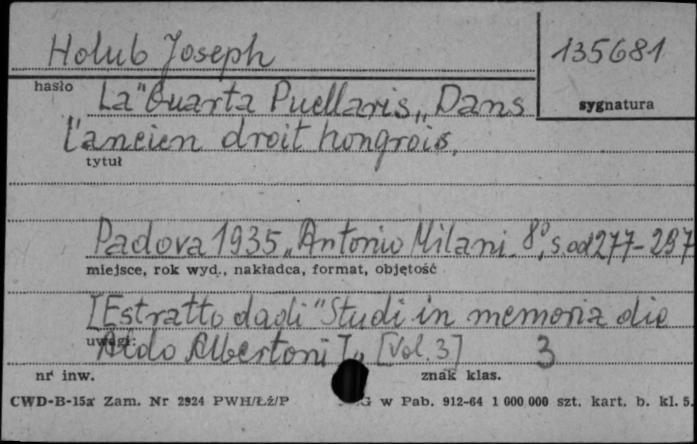 Holub Joseph
135681
hasło
La "Quarta Puellaris„ Dans
sygnatura
l'ancien droit hongrois.
tytuł
Padova 1935, Antonio Milani. 8°, s. od 277-297
miejsce, rok wyd., nakładca, format, objętość
[Estratto dagli "Studi in memoria die
uwagi:
Aldo Albertoni I„ [Vol. 3] 3
nr inw.
znak klas.
CWD-B-15a Zam. Nr 2924 PWH/Łż/P G w Pab. 912-64 1 000 000 szt. kart. b. kl. 5.